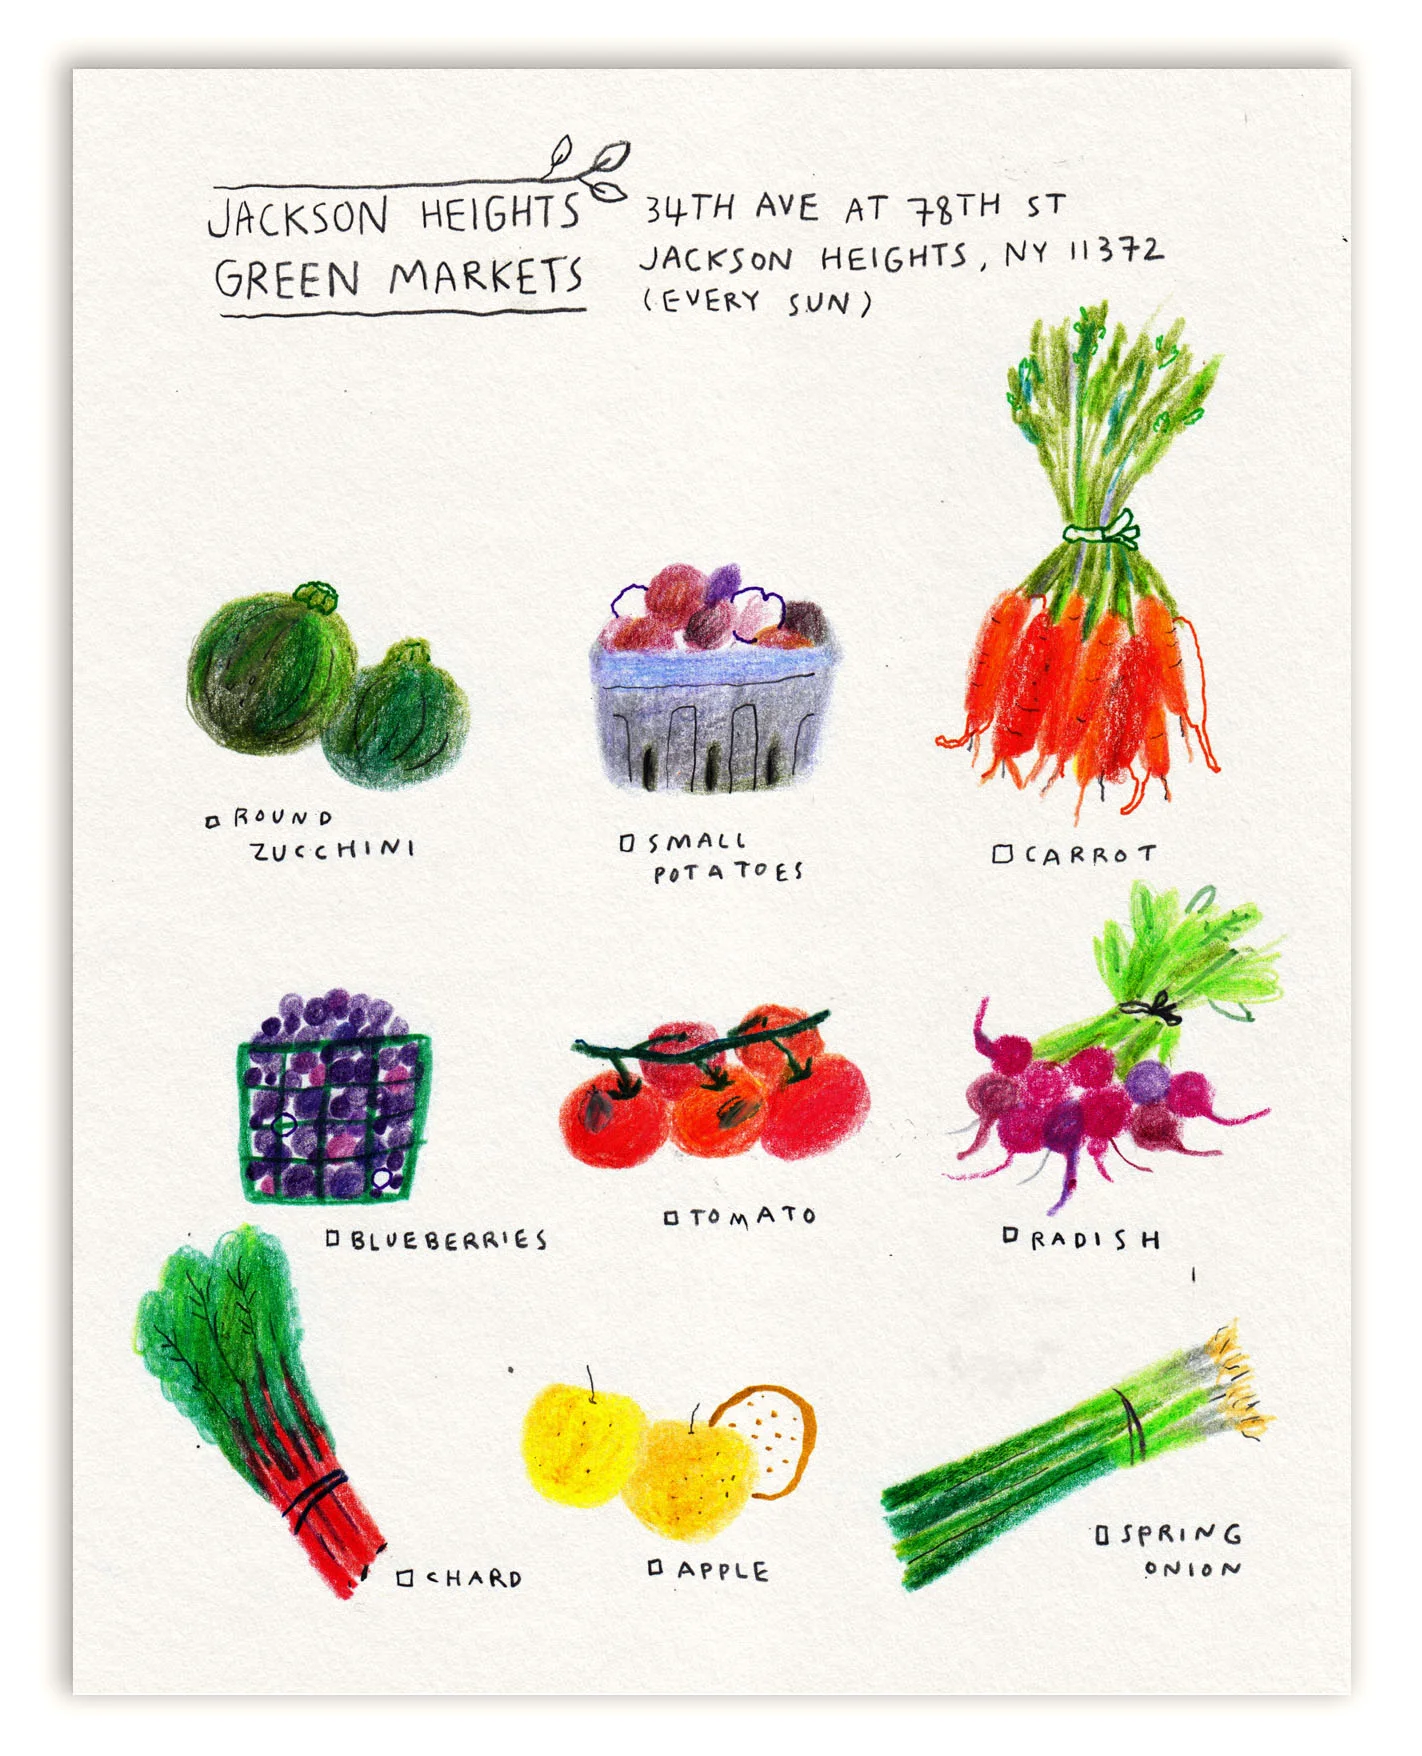 JACKSON HEIGHTS
GREEN MARKETS
34TH AVE AT 78TH ST
JACKSON HEIGHTS, NY 11372
(EVERY SUN)
ROUND
ZUCCHINI
SMALL
POTATOES
CARROT
BLUEBERRIES
TOMATO
RADISH
CHARD
APPLE
SPRING
ONION